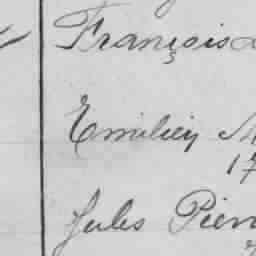 François
Emilien M
17
Jules Pierr